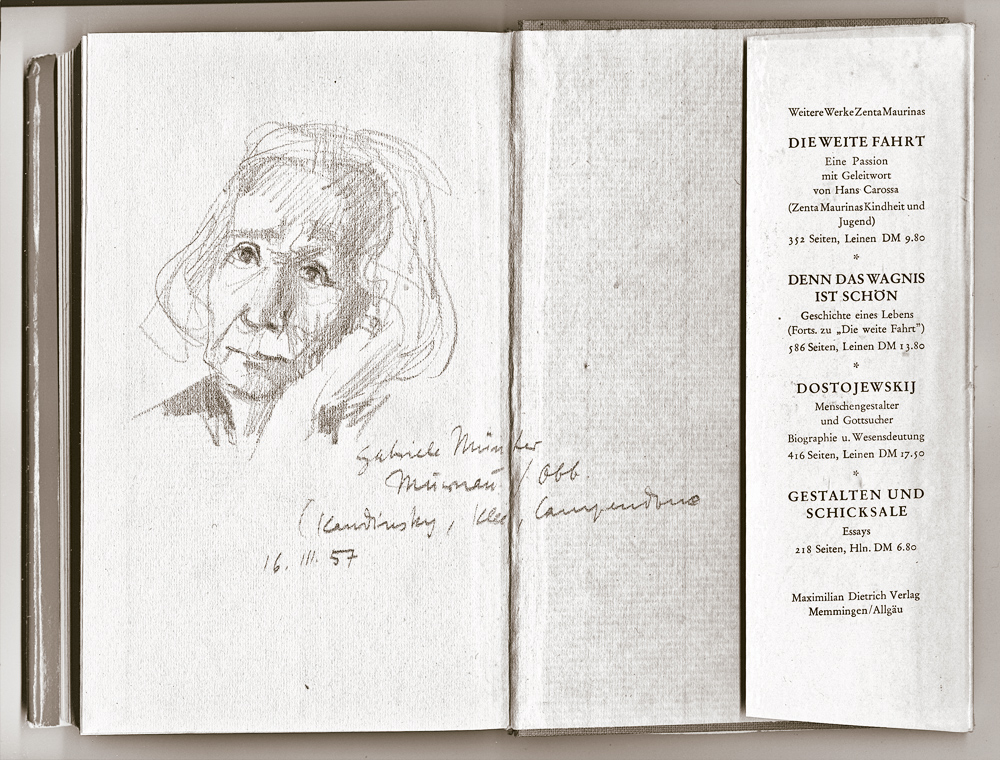 Gabriele Münter
Murnau / Obb.
(Kandinsky, Klee, Campendonc
16. III. 57
Weitere Werke Zenta Maurinas
DIE WEITE FAHRT
Eine Passion
mit Geleitwort
von Hans Carossa
(Zenta Maurinas Kindheit und
Jugend)
352 Seiten, Leinen DM 9.80
*
DENN DAS WAGNIS
IST SCHÖN
Geschichte eines Lebens
(Forts. zu „Die weite Fahrt”)
586 Seiten, Leinen DM 13.80
*
DOSTOJEWSKIJ
Menschengestalter
und Gottsucher
Biographie u. Wesensdeutung
416 Seiten, Leinen DM 17.50
*
GESTALTEN UND
SCHICKSALE
Essays
218 Seiten, Hln. DM 6.80
Maximilian Dietrich Verlag
Memmingen/Allgäu